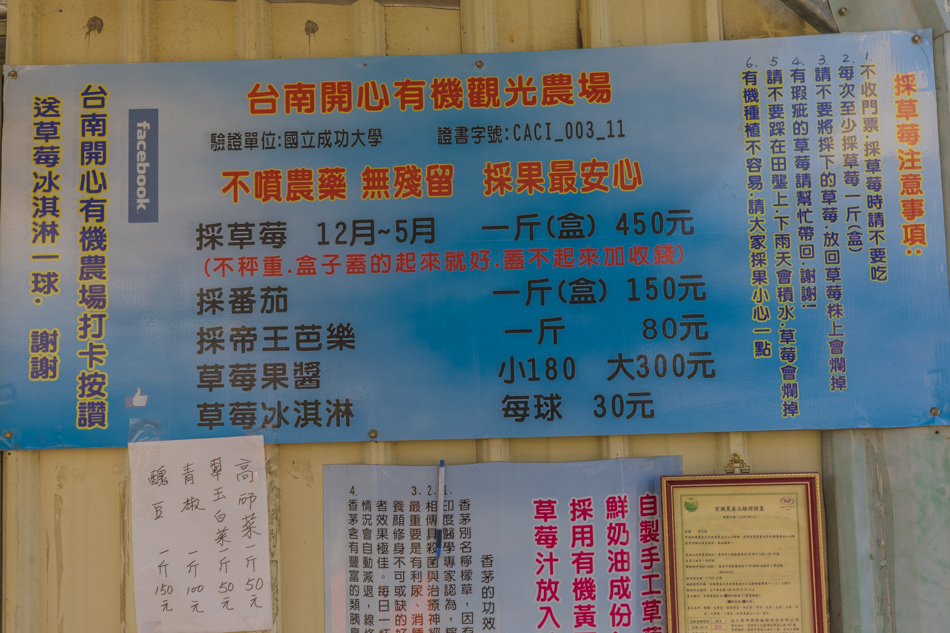 台南開心有機觀光農場
驗證單位:國立成功大學 證書字號:CACI_003_11
不噴農藥 無殘留 採果最安心
採草莓 12月~5月 一斤(盒) 450元
(不秤重.盒子蓋的起來就好.蓋不起來加收錢)
採番茄 一斤(盒) 150元
採帝王芭樂 一斤 80元
草莓果醬 小180 大300元
草莓冰淇淋 每球 30元
採草莓注意事項:
1.不收門票.採草莓時請不要吃
2.每次至少採草莓一斤(盒)
3.請不要將採下的草莓.放回草莓株上會爛掉
4.有瑕疵的草莓請幫忙帶回.謝謝!
5.請不要踩在田壟上.下雨天會積水.草莓會爛掉
6.有機種植不容易.請大家採果小心一點
facebook
台南開心有機農場打卡按讚
送草莓冰淇淋一球. 謝謝
菜一斤50元
翠玉白菜一斤50元
青椒 一斤100元
醜豆 一斤150元
自製手工草莓
鮮奶油成份
採用有機黃
草莓汁放入
香茅的功效
香茅別名檸檬草,因有
1.印度醫學專家認為,檸
2.相傳具殺菌與治療神經
3.最重要是有利尿、消腫
養顏修身不可或缺的好
者效果極佳。每日一杯
情況會自動減退,線條
4.香茅含有豐富的類胰島